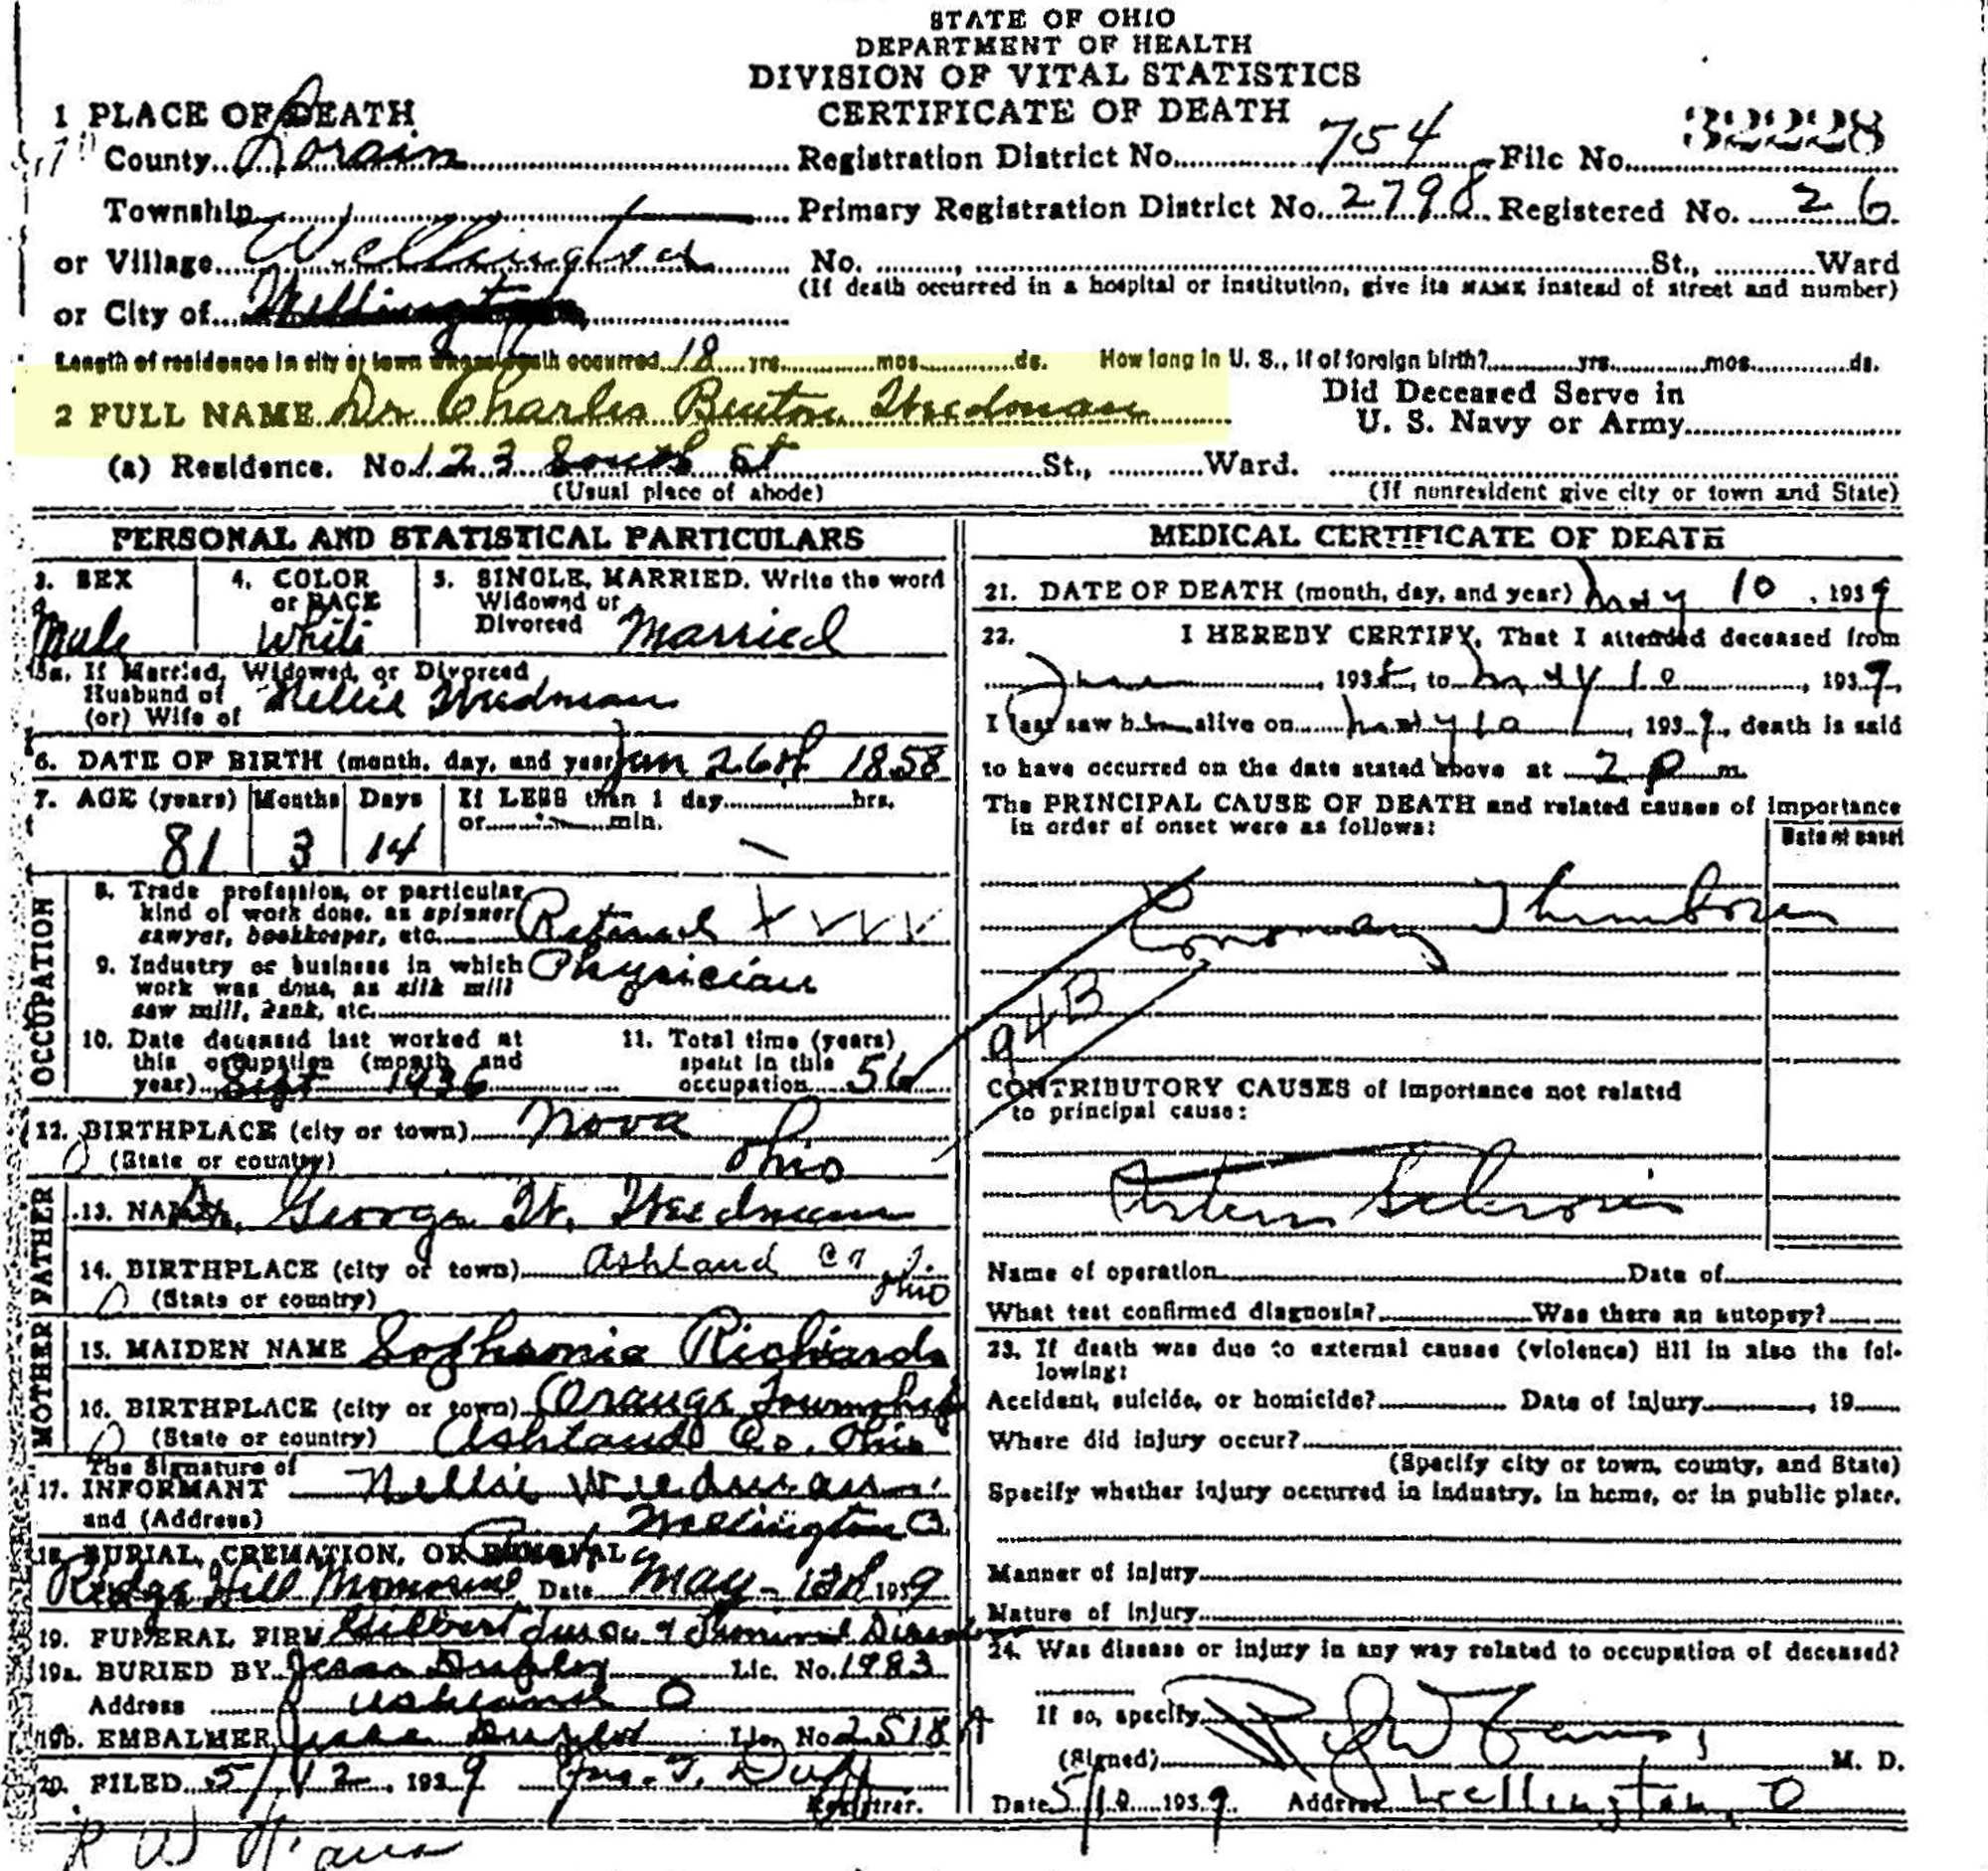 STATE OF OHIO
DEPARTMENT OF HEALTH
DIVISION OF VITAL STATISTICS
CERTIFICATE OF DEATH
1 PLACE OF DEATH
County Lorain Registration District No. 754 File No. 32228
Township Primary Registration District No. 2798 Registered No. 26
or Village Wellington No. St., Ward
(If death occurred in a hospital or institution, give its NAME instead of street and number)
or City of Wellington
Length of residence in city or town where death occurred 18 yrs. mos. ds. How long in U. S., if of foreign birth? yrs. mos. ds.
2 FULL NAME Dr Charles Benton Wiedman
Did Deceased Serve in
U. S. Navy or Army
(a) Residence. No. 123 South St St., Ward.
(Usual place of abode) (If nonresident give city or town and State)
PERSONAL AND STATISTICAL PARTICULARS
3. SEX 4. COLOR or RACE 5. SINGLE, MARRIED, Write the word Widowed or Divorced
Male White Married
5a. If Married, Widowed, or Divorced
Husband of
(or) Wife of Nellie Wiedman
6. DATE OF BIRTH (month, day, and year) Jan 26th 1858
7. AGE (years) Months Days If LESS than 1 day hrs.
or min.
81 3 14
OCCUPATION
8. Trade profession, or particular
kind of work done, as spinner
sawyer, bookkeeper, etc. Retired
9. Industry or business in which
work was done, as silk mill
saw mill, bank, etc. Physician
10. Date deceased last worked at
this occupation (month and
year) Sept 1936
11. Total time (years)
spent in this
occupation 56
12. BIRTHPLACE (city or town) Nova
(State or country) Ohio
FATHER
13. NAME Dr. George W. Wiedman
14. BIRTHPLACE (city or town) Ashland Co
(State or country) Ohio
MOTHER
15. MAIDEN NAME Sophronia Richards
16. BIRTHPLACE (city or town) Orange Township
(State or country) Ashland Co. Ohio
The Signature of
17. INFORMANT Nellie Wiedman
and (Address) Wellington O.
18. BURIAL, CREMATION, OR REMOVAL
Ridge Hill Memorial Date May 13th 1939
19. FUNERAL FIRM Gilbert
19a. BURIED BY Lic. No. 1983
Address Ashland O
19b. EMBALMER Lic. No. 2518 A
20. FILED 5/12, 1939 Jno. T. Duff
Registrar.
MEDICAL CERTIFICATE OF DEATH
21. DATE OF DEATH (month, day, and year) May 10, 1939
22. I HEREBY CERTIFY, That I attended deceased from
June, 1938, to May 10, 1939,
I last saw him alive on May 10, 1939, death is said
to have occurred on the date stated above at 2 p m.
The PRINCIPAL CAUSE OF DEATH and related causes of importance
in order of onset were as follows:
Date of onset
Coronary Thrombosis
94B
CONTRIBUTORY CAUSES of importance not related
to principal cause:
Arterio Sclerosis
Name of operation Date of
What test confirmed diagnosis? Was there an autopsy?
23. If death was due to external causes (violence) fill in also the fol-
lowing:
Accident, suicide, or homicide? Date of Injury, 19
Where did injury occur?
(Specify city or town, county, and State)
Specify whether injury occurred in industry, in home, or in public place.
Manner of injury
Nature of injury
24. Was disease or injury in any way related to occupation of deceased?
If so, specify
(Signed) M. D.
Date 5/10 1939 Address Wellington, O